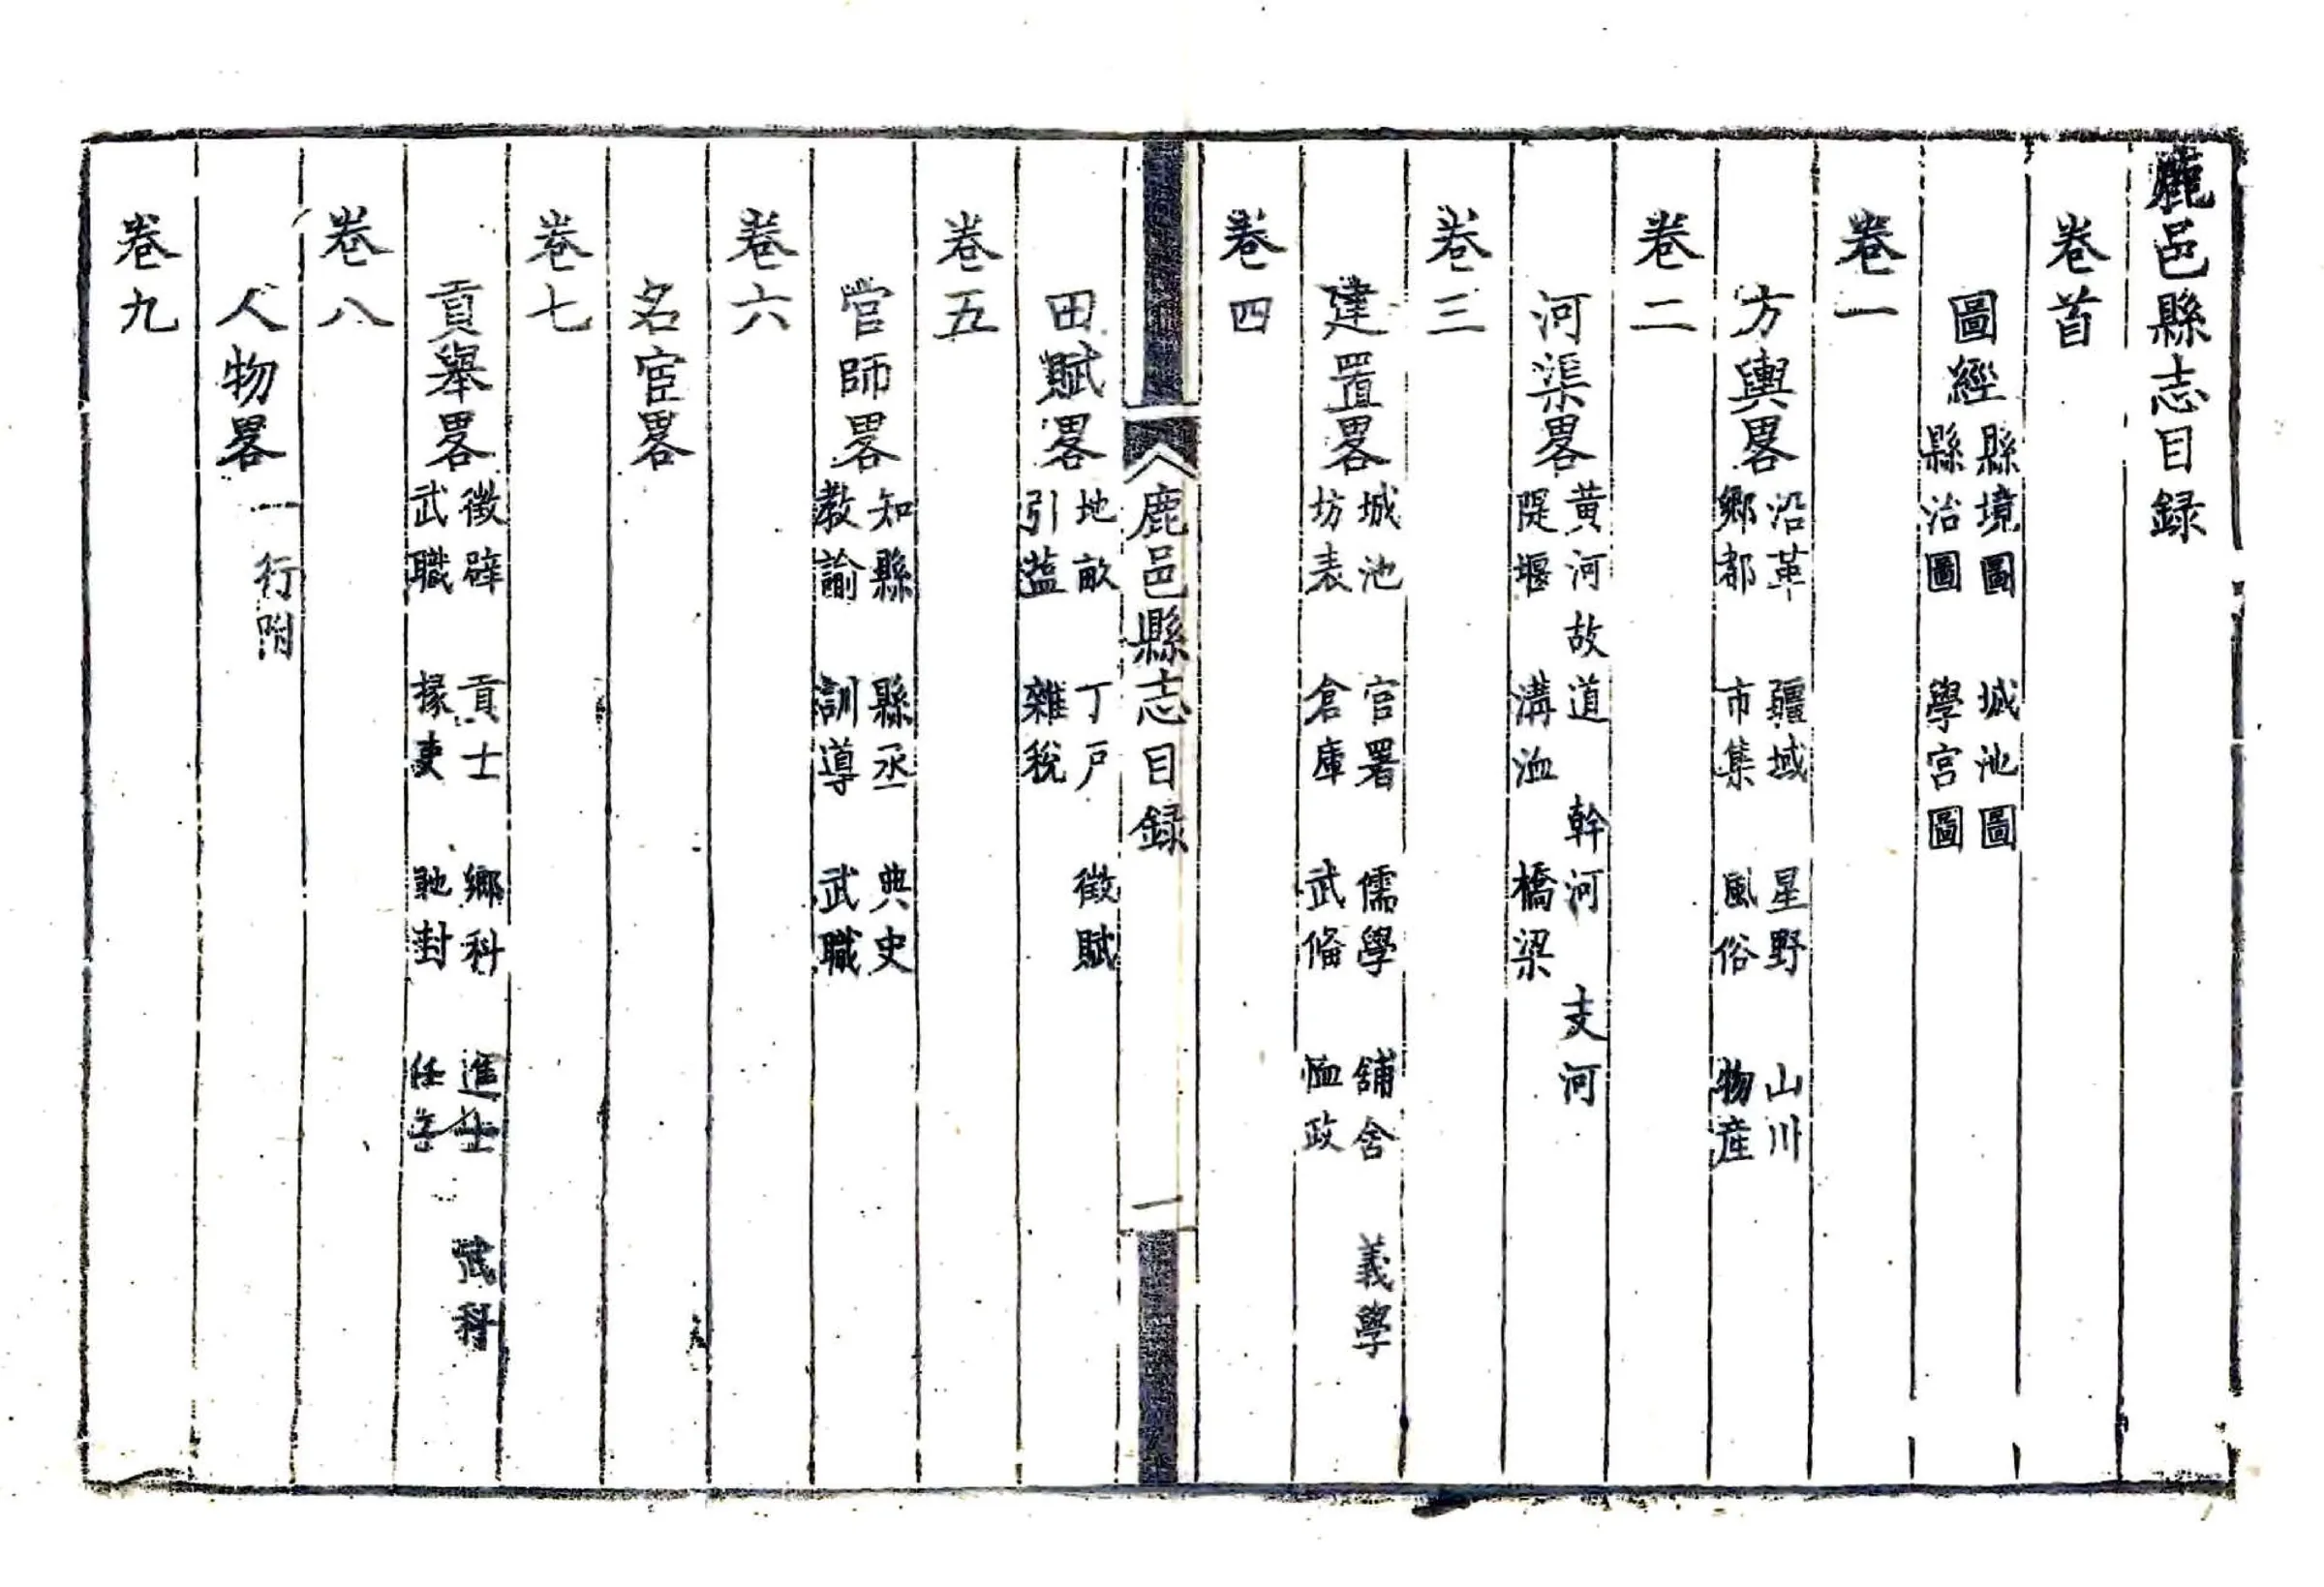 鹿邑縣志目録
卷首
圖經 縣境圖 城池圖
縣治圖 學宮圖
卷一
方輿畧 沿革 疆域 星野 山川
鄉都 市集 風俗 物産
卷二
河渠畧 黄河故道 幹河 支河
隄堰 溝洫 橋梁
卷三
建置畧 城池 官署 儒學 舖舍 義學
坊表 倉庫 武俻 恤政
卷四
鹿邑縣志目録 一
田賦畧 地畝 丁戸 徵賦
引蓝 雜稅
卷五
官師畧 知縣 縣丞 典史
教諭 訓導 武職
卷六
名宦畧
卷七
貢舉畧 徵辟 貢士 鄉科 進士 武科
武職 掾吏 馳封 任
卷八
人物畧 一行附
卷九